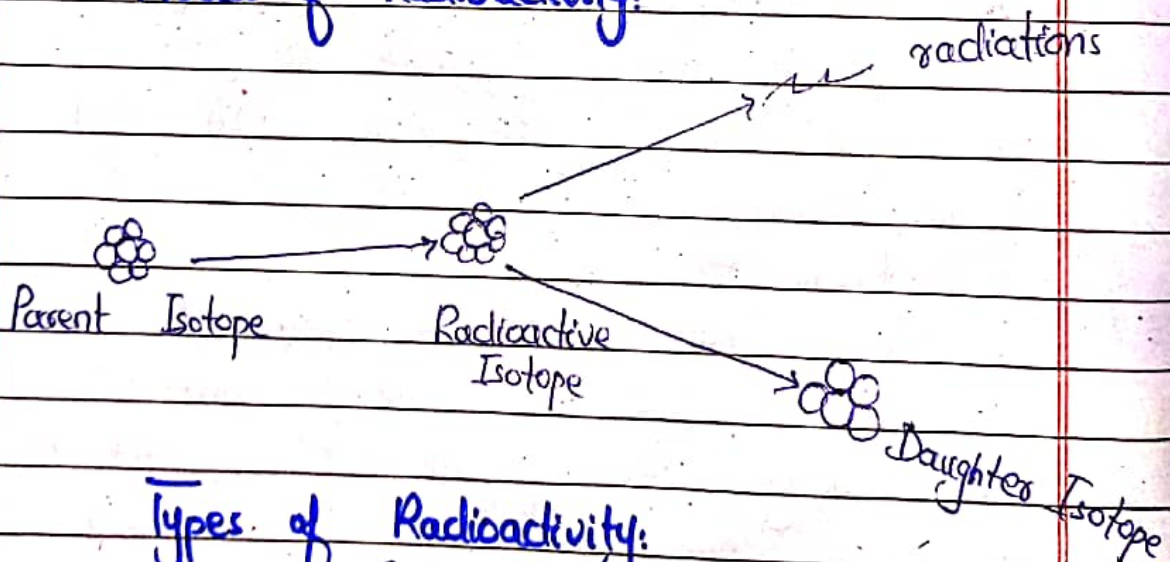 of Radioactivity:
radiations
Parent Isotope
Radioactive
Isotope
Daughter Isotope
Types of Radioactivity: